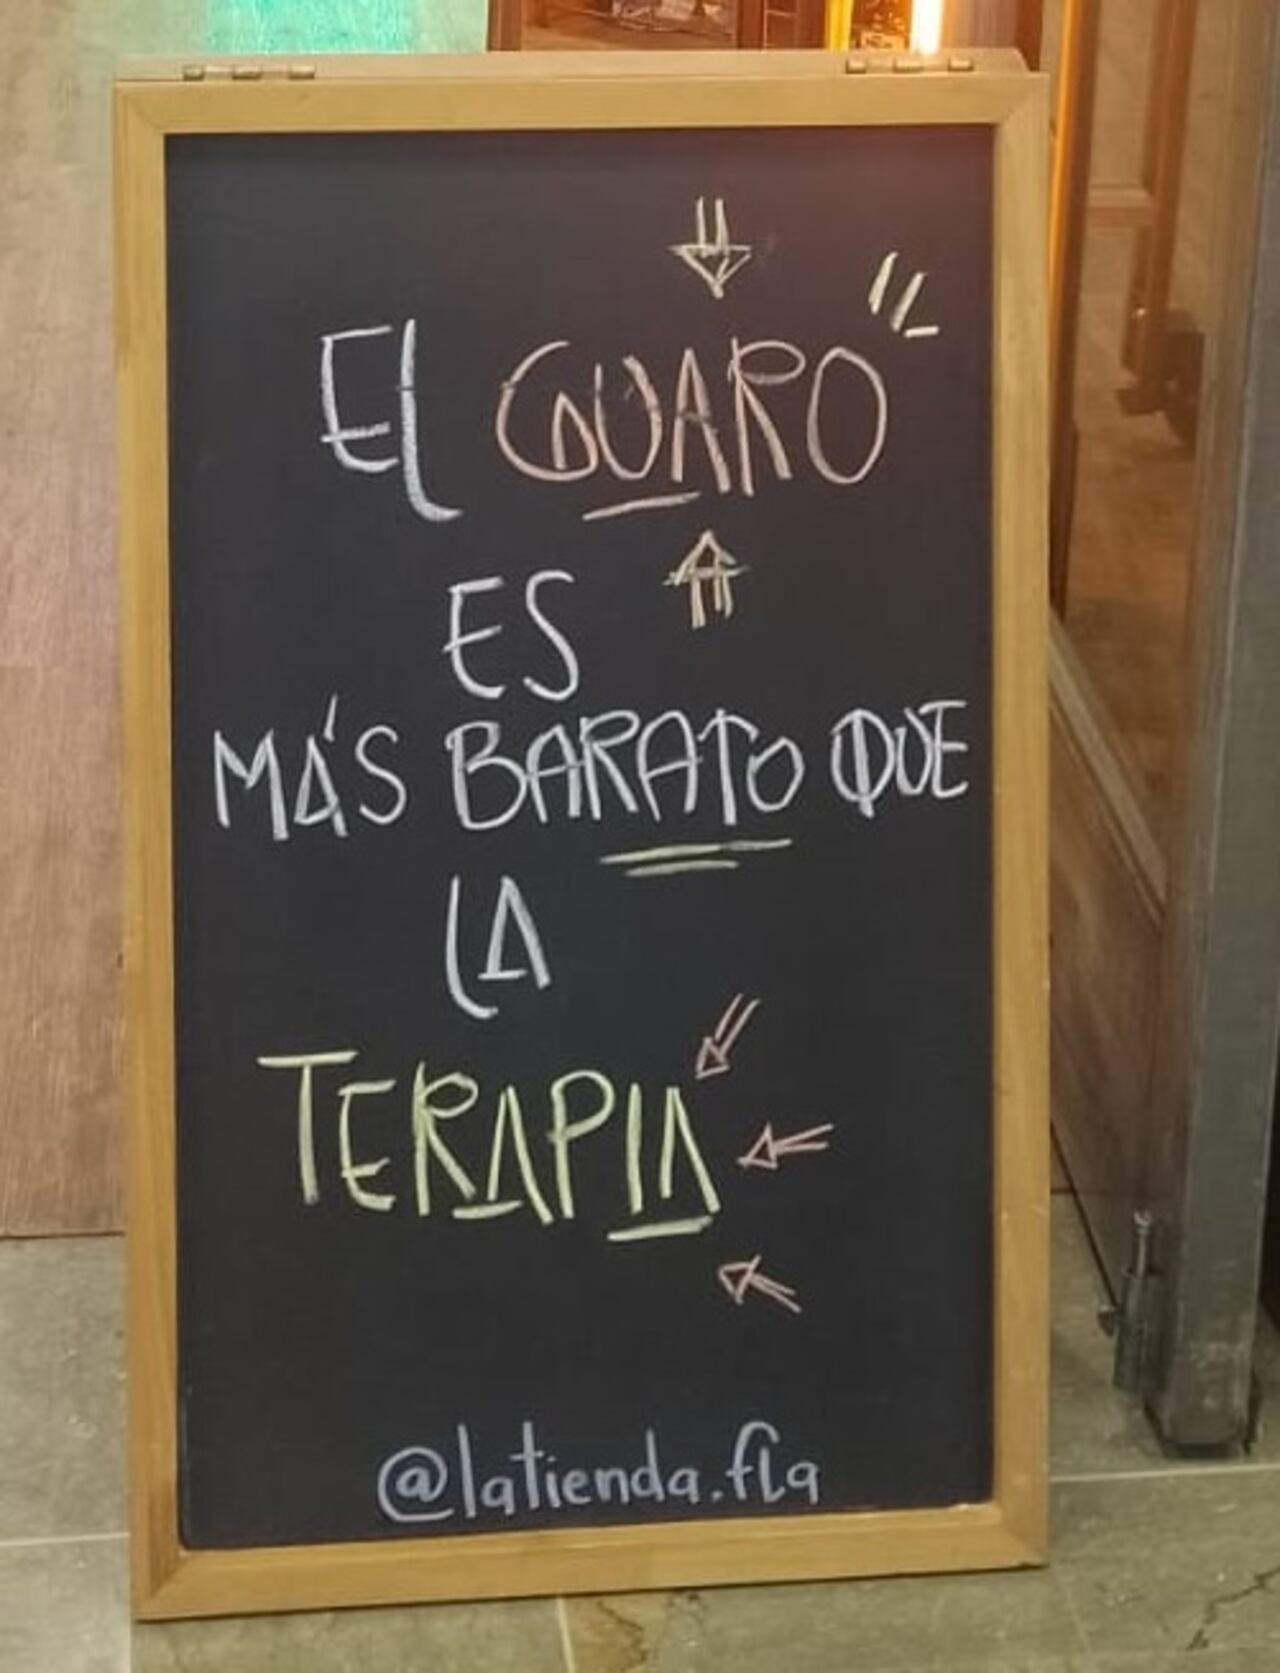 El GUARO
ES
MÁS BARATO QUE
LA
TERAPIA
@latienda.fla